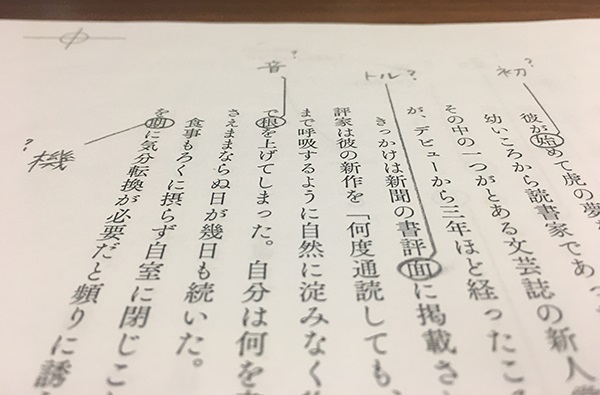 初?
彼が始めて虎の夢
幼いころから読書家であ
その中の一つがとある文芸誌の新人
が、デビューから三年ほど経ったこ
トル?
きっかけは新聞の書評面に掲載さ
評家は彼の新作を「何度通読しても、
まで呼吸するように自然に淀みなく
音?
で根を上げてしまった。自分は何を
さえままならぬ日が幾日も続いた。
食事もろくに摂らず自室に閉じこ
を期に気分転換が必要だと頻りに誘
機?